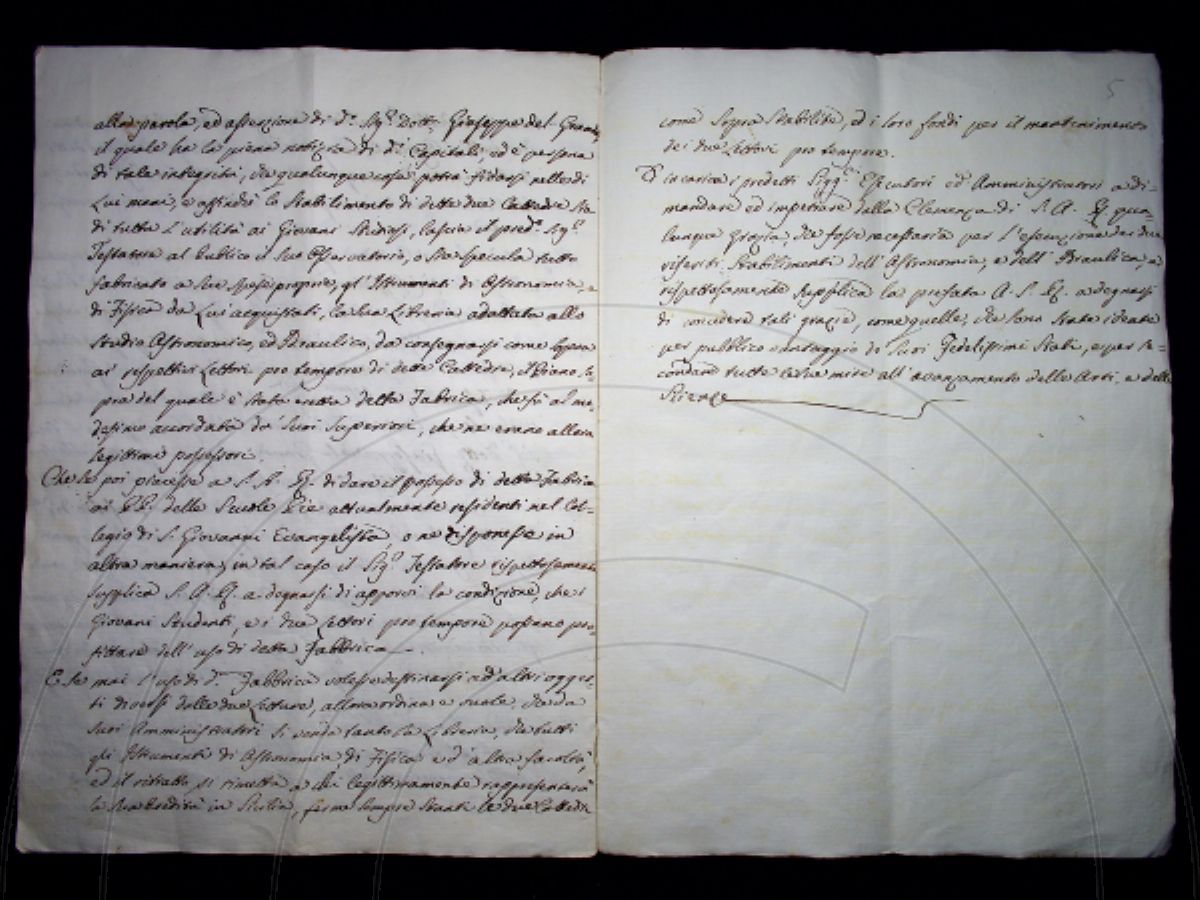 alla parola, ed asserzione di d.º Sig.r Dott.r Giuseppe del
il quale ha la piena notizia di d.i Capitali, ed è persona
di tale integrità, che qualunque cosa potrà fidarsi nelle di
Lui mani, e affinchè lo Stabilimento di dette due Cattedre sia
di tutta l'utilità ai Giovani Studiosi, lascia il pred.º Sig.r
Testatore al Publico il suo Osservatorio, o sia Specula tutto
fabricato a sue spese proprie, gl'Istrumenti di Astronomia, e
di Fisica da Lui acquistati, la sua Libreria adattata allo
studio Astronomico, ed Idraulico, da consegnarsi come sopra
ai rispettivi Lettori pro tempore di dette Cattedre, il Piano so-
pra del quale è stata eretta detta Fabrica, che fù al me-
desimo accordato da' suoi Superiori, che ne erano allora
legittimi possessori.
Che se poi piacesse a S. A. R. di dare il possesso di detta Fabrica
ai PP. delle Scuole Pie attualmente residenti nel Col-
legio di S. Giovanni Evangelista, o ne disponesse in
altra maniera, in tal caso il Sig.r Testatore rispettosamente
supplica S. A. R. a degnarsi di apporvi la condizione, che i
Giovani Studenti, e i due Lettori pro tempore possano pro-
fittare dell'uso di detta Fabbrica.
E se mai l'uso di d.ª Fabbrica volesse destinarsi ad altri ogget-
ti diversi dalle due Letture, allora ordina e vuole, che da
suoi Amministratori si venda tanto la Libreria, che tutti
gli Istrumenti di Astronomia, di Fisica e d'altra facoltà,
ed il ritratto si rimetta a chi legittimamente rappresenterà
la sua Eredità in Sicilia, ferme sempre stanti le due Cattedre
5
come sopra stabilite, ed i loro fondi per il mantenimento
dei due Lettori pro tempore.
Incarica i predetti Sigg.ri Esecutori ed Amministratori a di-
mandare ed impetrare dalla Clemenza di S. A. R. qua-
lunque grazia, che fosse necessaria per l'esecuzione dei due
riferiti Stabilimenti dell'Astronomia, e dell'Idraulica, e
rispettosamente supplica la prefata A. S. R. a degnarsi
di concedere tali grazie, come quelle, che sono state ideate
per pubblico vantaggio de suoi Fedelissimi Stati, e per se-
condare tutte le sue mire all'avanzamento delle Arti, e delle
Scienze